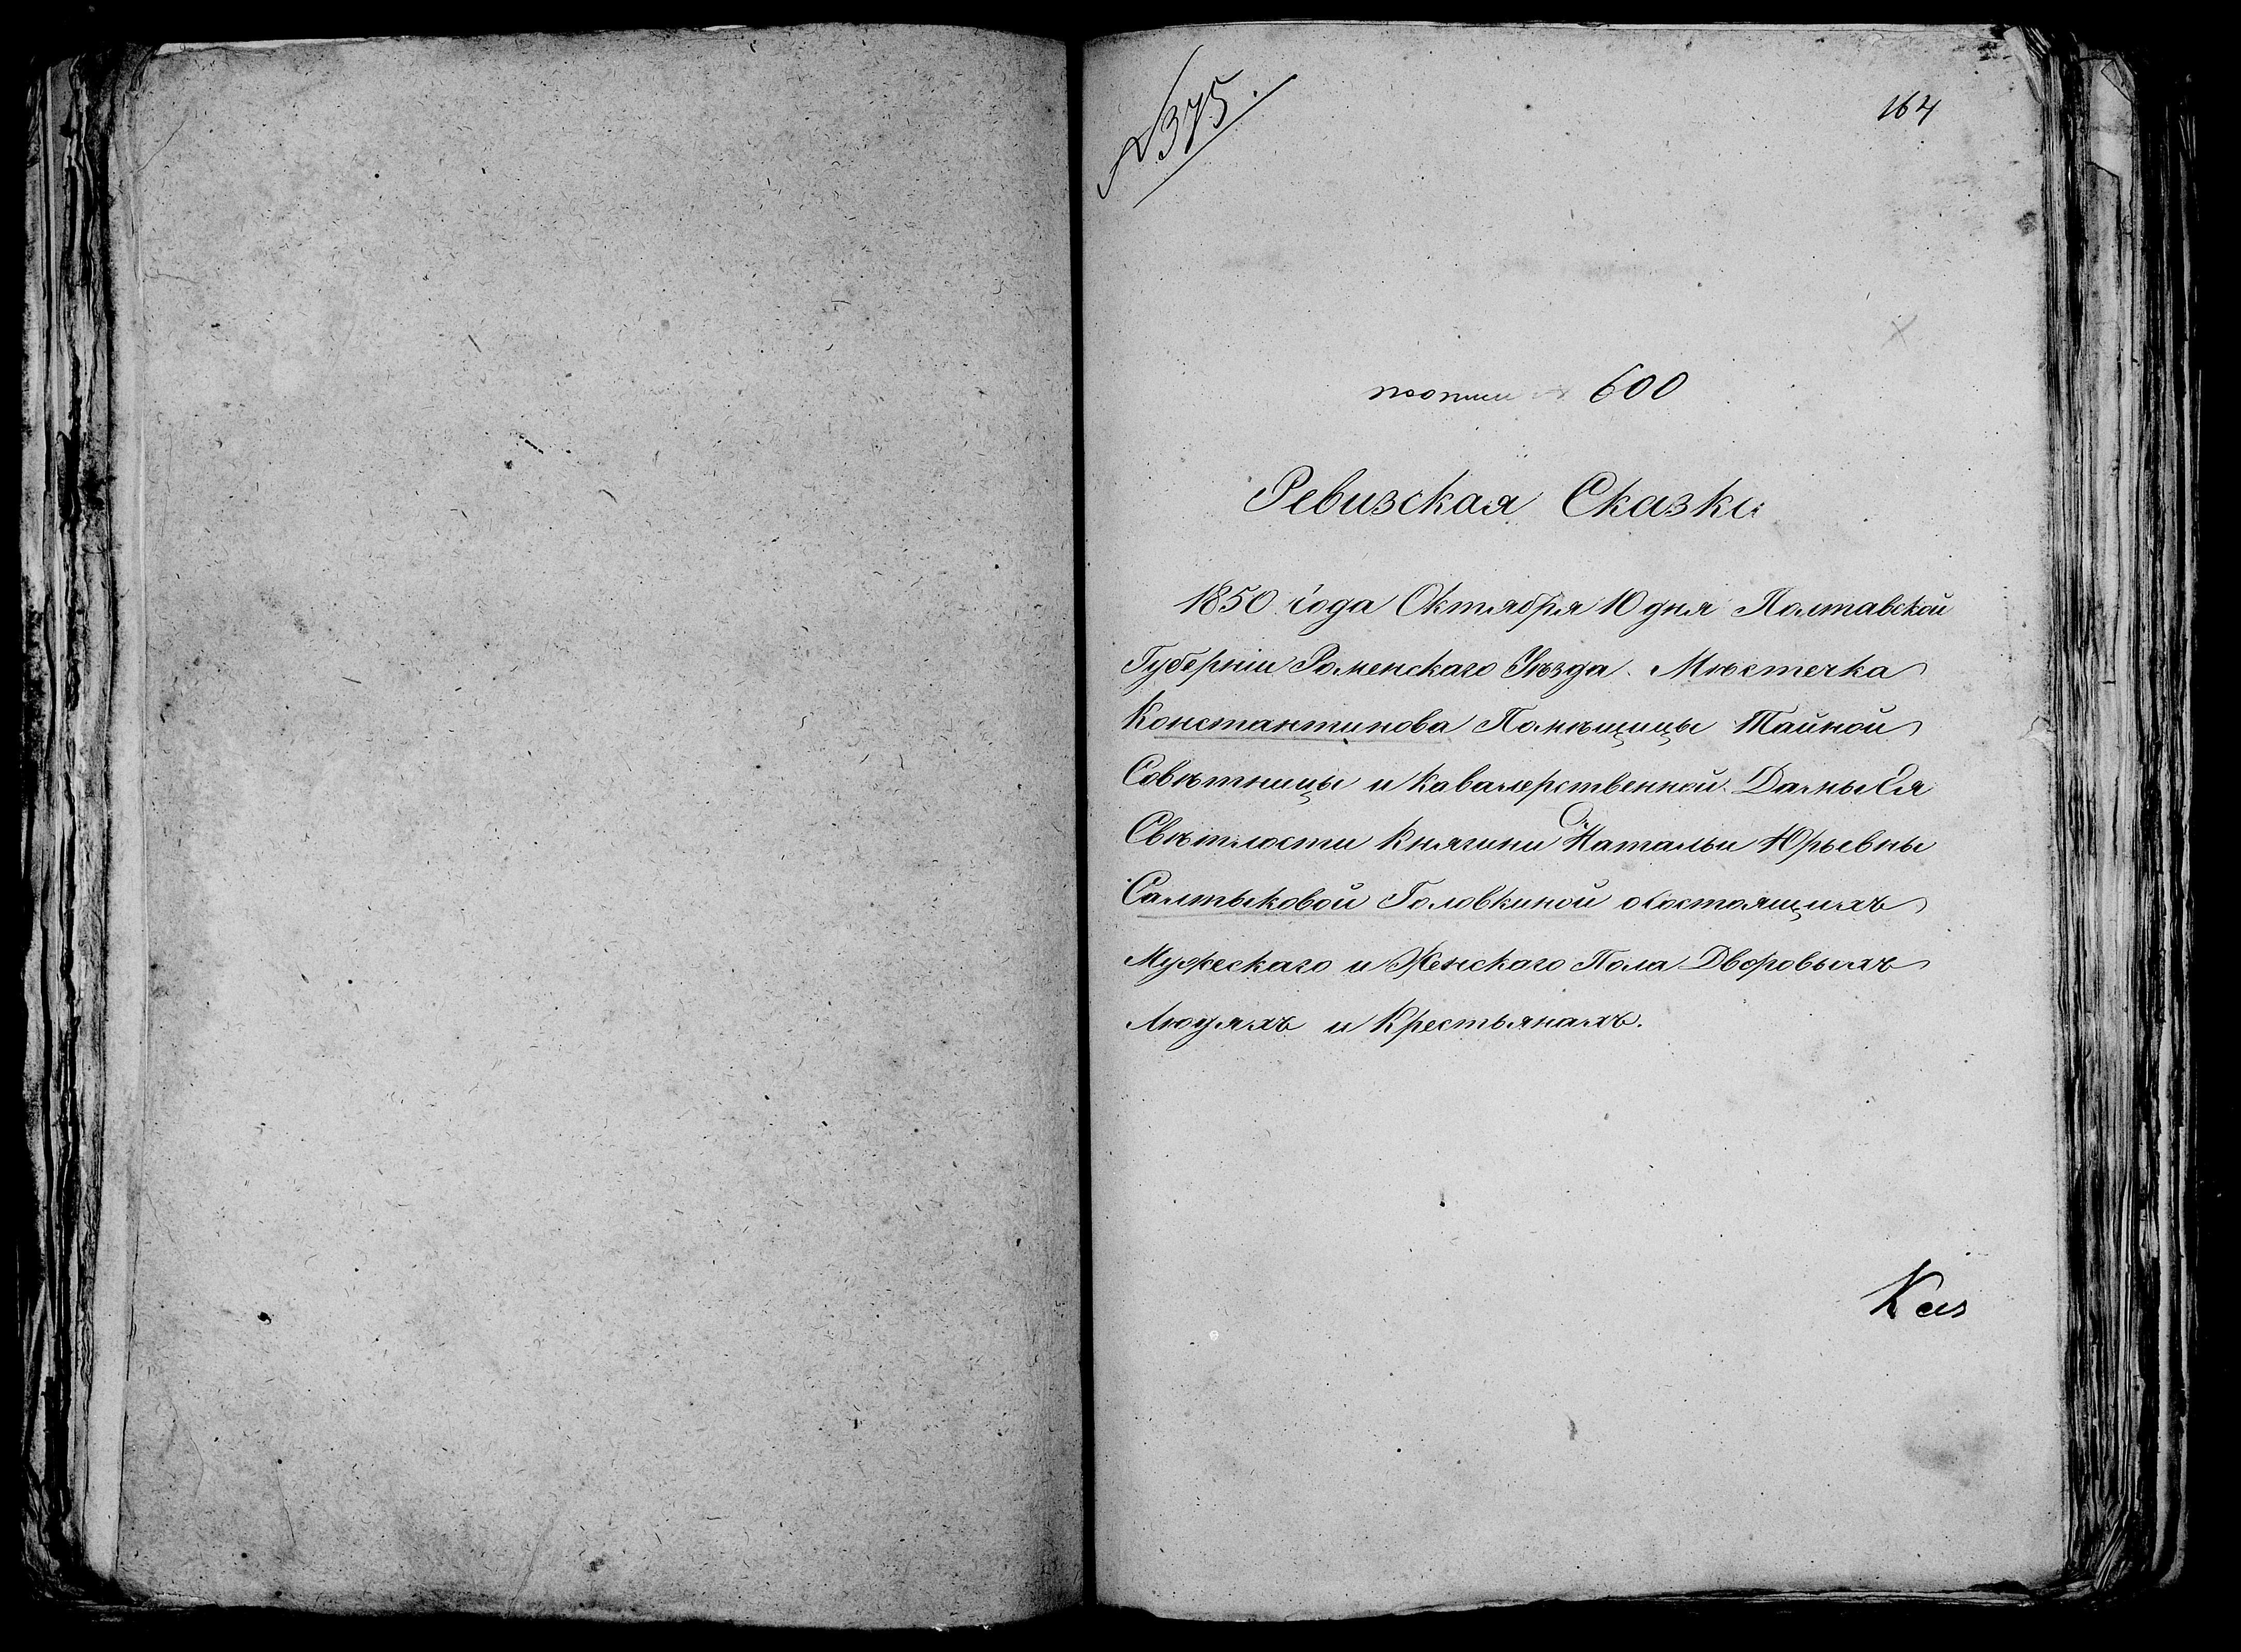 № 375.
164
600
Ревизская Сказка
1850 года Октября 10 дня Полтавской
Губерніи Роменскаго Уѣзда. Мѣстечка
Константинова Помѣщицы Тайной
Совѣтницы и Кавалерственной Дамы Ея
Свѣтлости Княгини Натальи Юрьевны
Салтыковой Головкиной о состоящихъ
Мужескаго и Женскаго Пола Дворовыхъ
Людяхъ и Крестьянахъ.